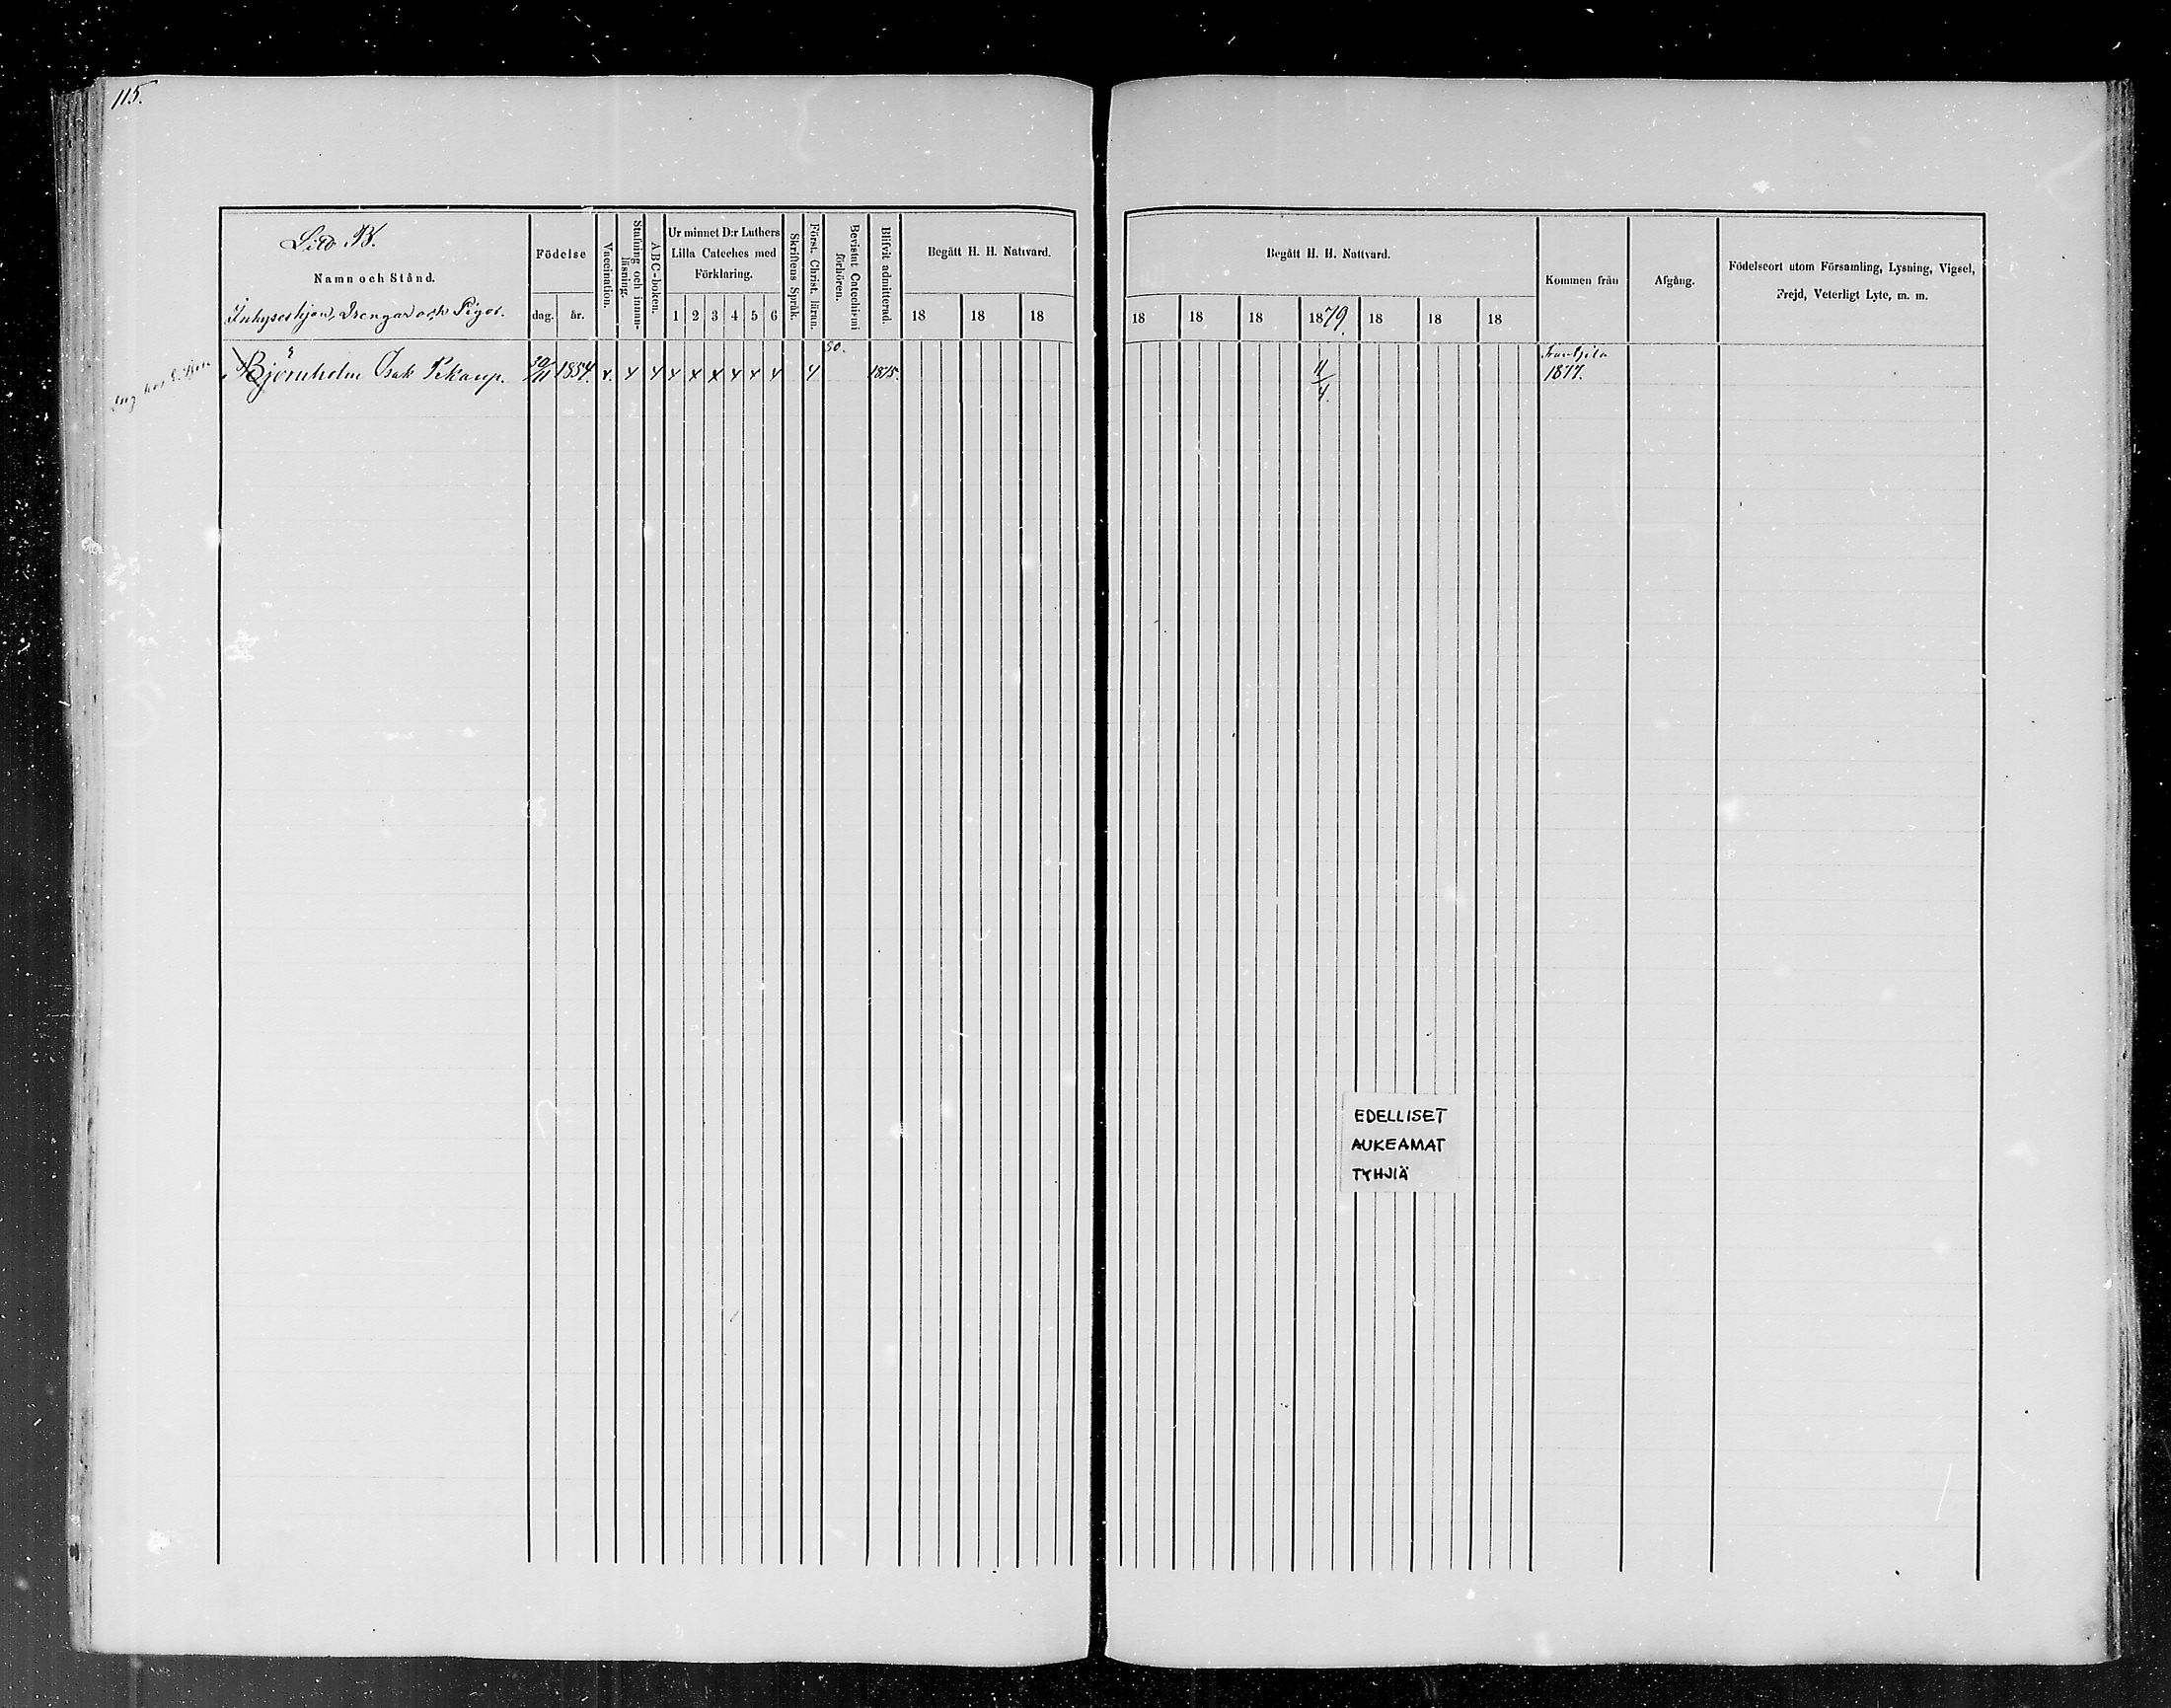 115.
Litt. B.
Namn och Stånd.
Inhyseshjon, Drengar och Pigor.
Födelse
dag. år.
Vaccination.
Stafning och innanläsning.
ABC-boken.
Ur minnet D:r Luthers
Lilla Cateches med
Förklaring.
1 2 3 4 5 6
Skriftens Språk.
Först. Christ. läran.
Bevistat Catechismi
förhören.
Blifvit admitterad.
Begått H. H. Nattvard.
18 18 18
Begått H. H. Nattvard.
18 18 18 1879. 18 18 18
Kommen från
Afgång.
Födelseort utom Församling, Lysning, Vigsel,
Frejd, Veterligt Lyte, m. m.
80.
Björnholm Isak 30/11 1854. v. x x x x x x 1875. 11/4. 1877.
EDELLISET
AUKEAMAT
TYHJIÄ